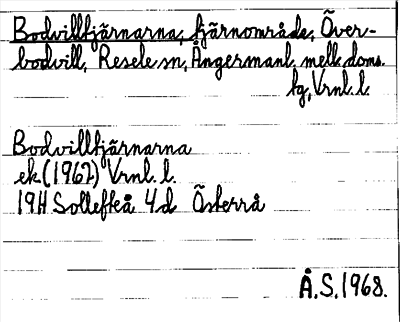 Bodvilltjärnarna, tjärnområde, Över-
bodvill, Resele sn, Ångermanl. mell. doms.
tg, Vrnl. l.
Bodvilltjärnarna
ek. (1962) Vrnl. l.
19H Sollefteå 4d Österrå
Å.S. 1968.